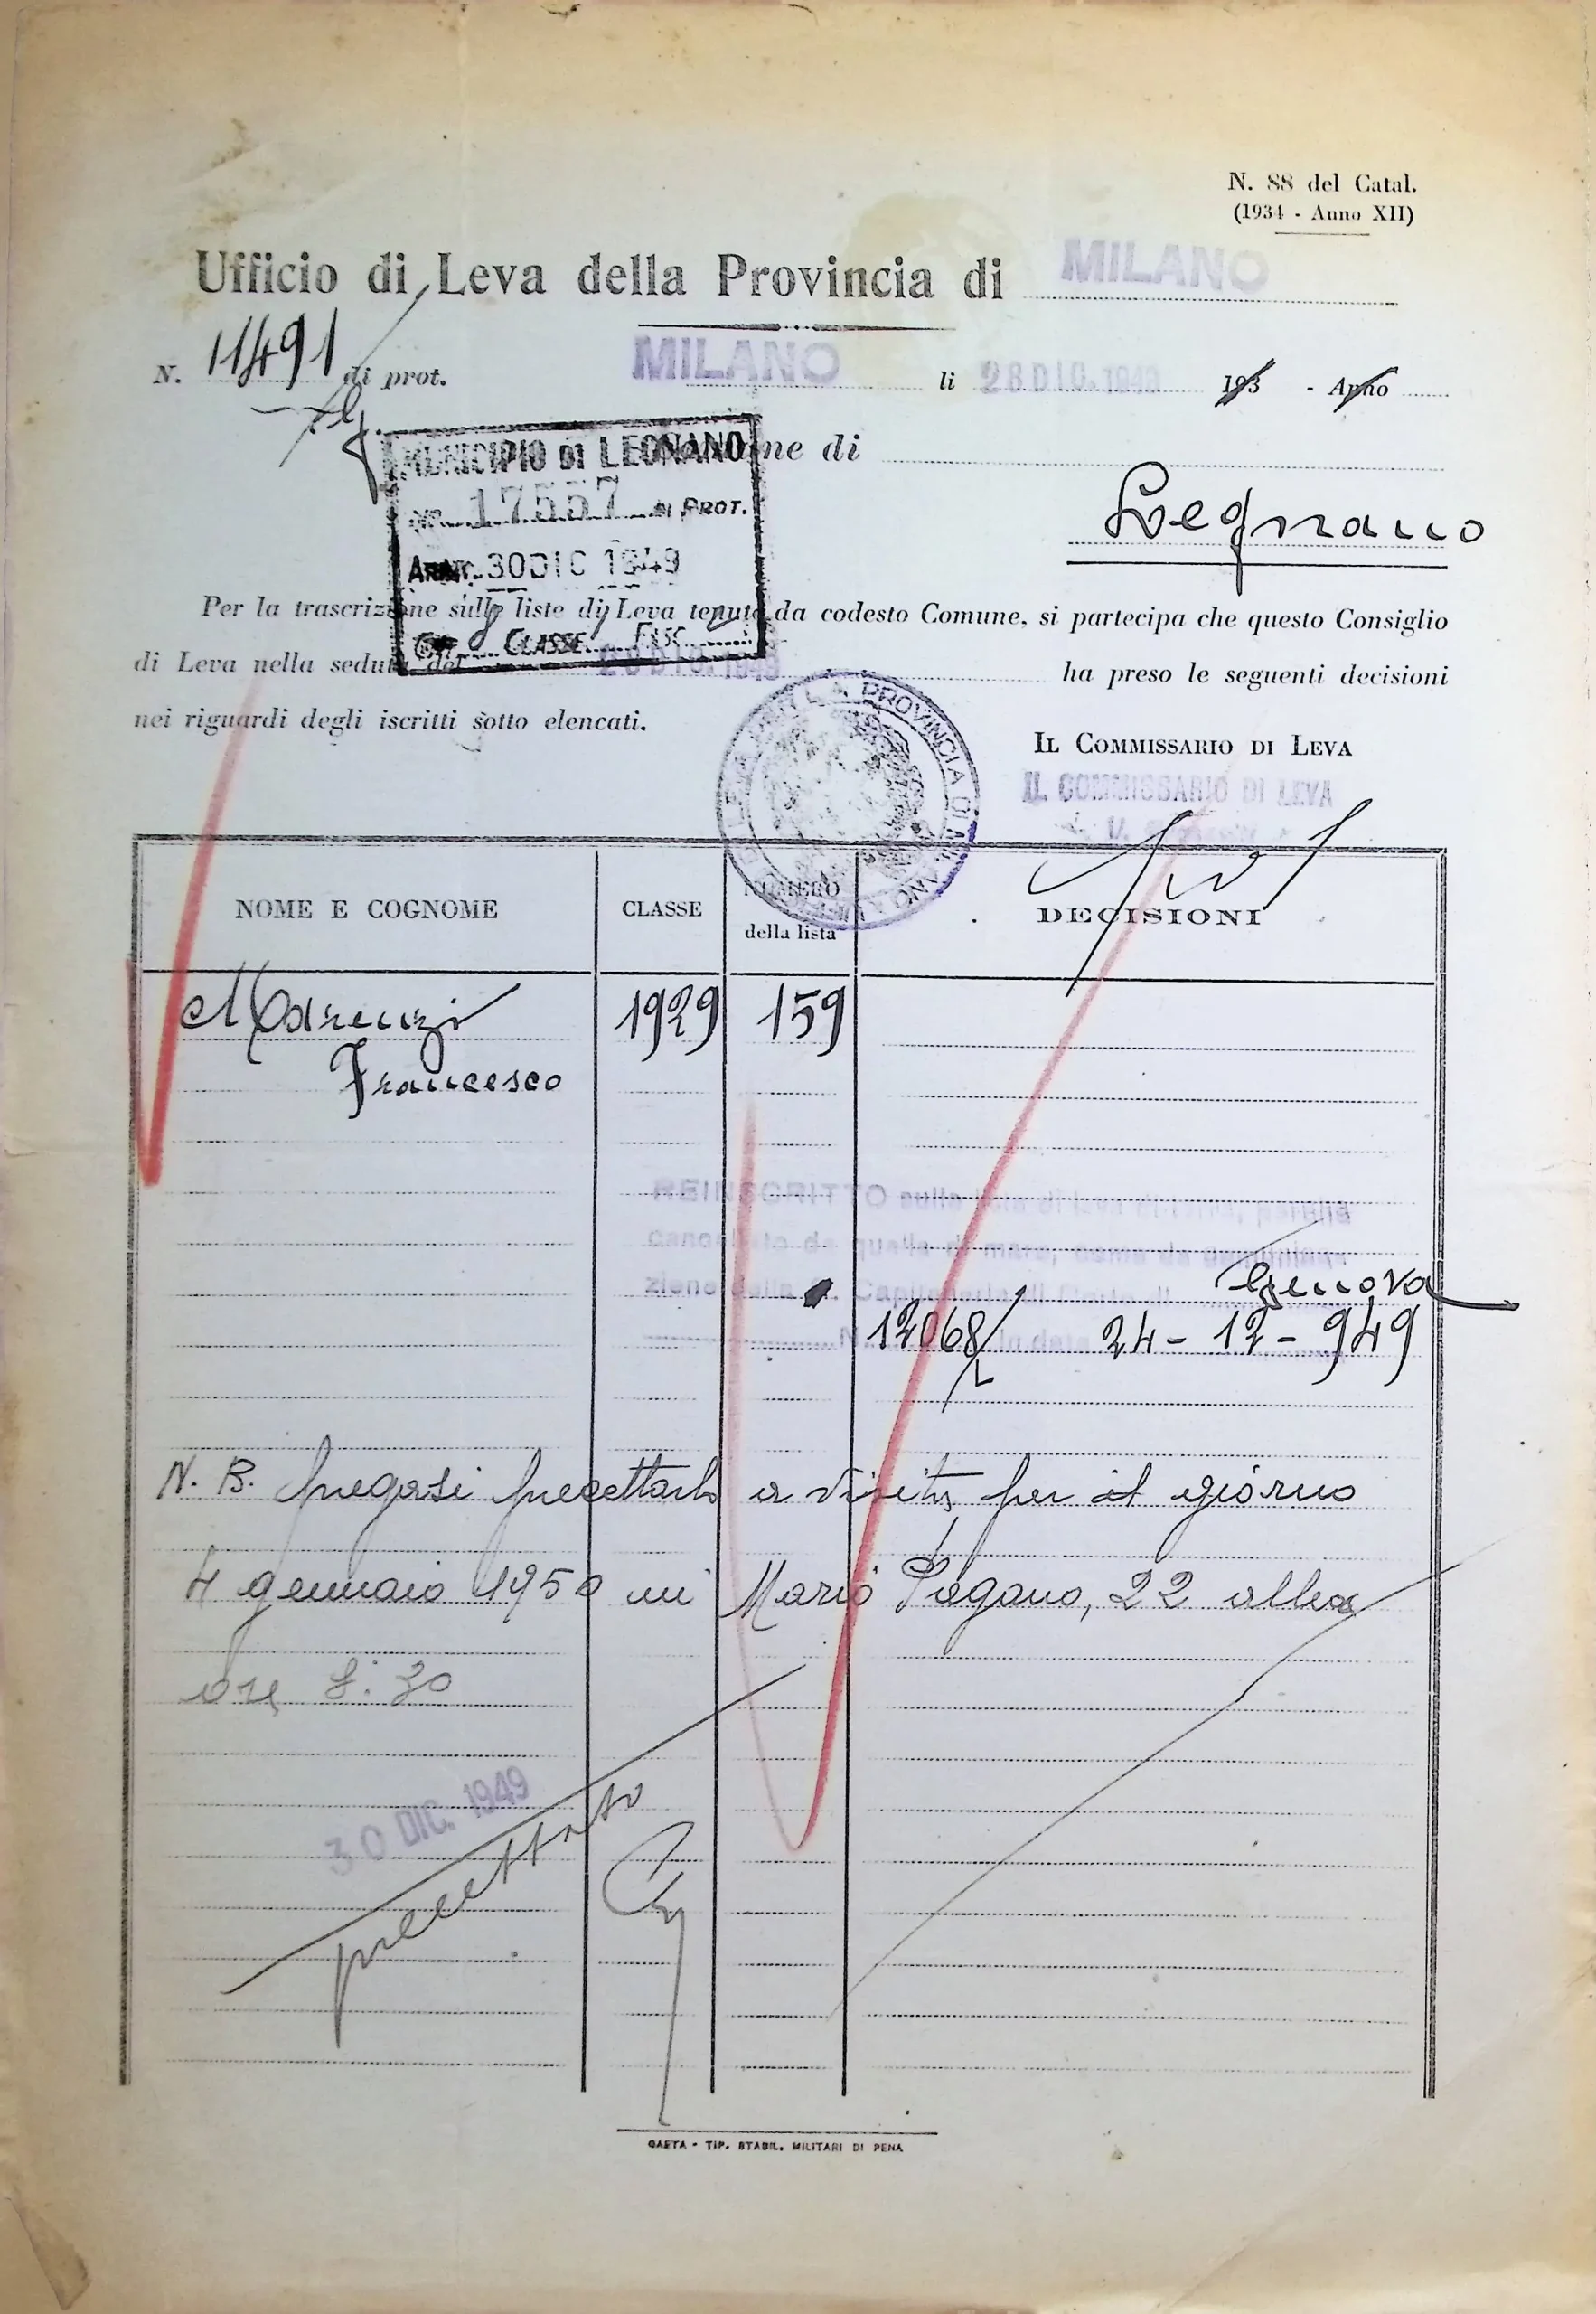 N. 88 del Catal.
(1934 - Anno XII)
Ufficio di Leva della Provincia di MILANO
N. 11491 di prot. MILANO li 28 DIC. 1949 193 - Anno
MUNICIPIO DI LEGNANO
No. 17557 DI PROT.
ARRIV. 30 DIC 1949
CAT. CLASSE FASC.
Comune di
Legnano
Per la trascrizione sulle liste di Leva tenute da codesto Comune, si partecipa che questo Consiglio
di Leva nella seduta del 28 DIC. 1949 ha preso le seguenti decisioni
nei riguardi degli iscritti sotto elencati.
IL COMMISSARIO DI LEVA
IL COMMISSARIO DI LEVA
LEVA PER LA PROVINCIA DI MILANO
NOME E COGNOME CLASSE NUMERO della lista DECISIONI
Marenzi 1929 159
Francesco
REINSCRITTO sulla lista di leva di terra, perchè
cancellato da quella di mare, come da comunica-
zione della Capitaneria di Porto di Genova
N. 12068/L in data 24-12-949
N. B. pregasi precettarlo a visita per il giorno
4 gennaio 1950 in Mario Pagano, 22 alle
ore 8:30
30 DIC. 1949
precettato
GAETA - TIP. STABIL. MILITARI DI PENA